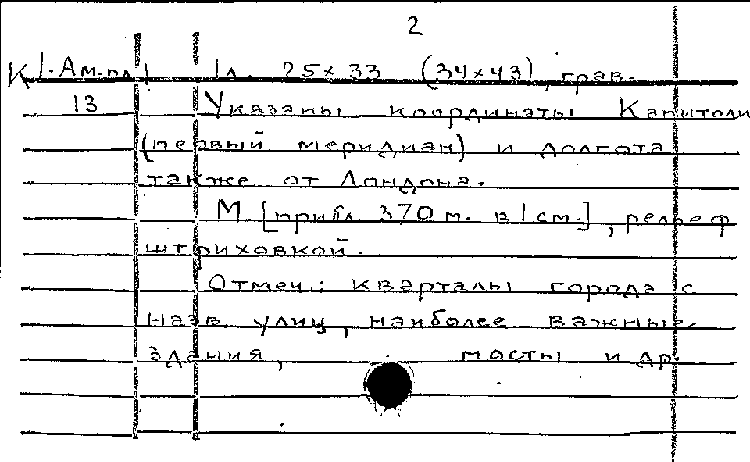 2
К 1-Ам.пл. 1л. 25×33 (34×43), грав.
13 Указаны координаты Капитоли
(первый меридиан) и долгота
также от Лондона.
М [прибл 370 м. в 1 см.], рельеф
штриховкой.
Отмеч.: кварталы города с
назв улиц, наиболее важные
здания, мосты и др.